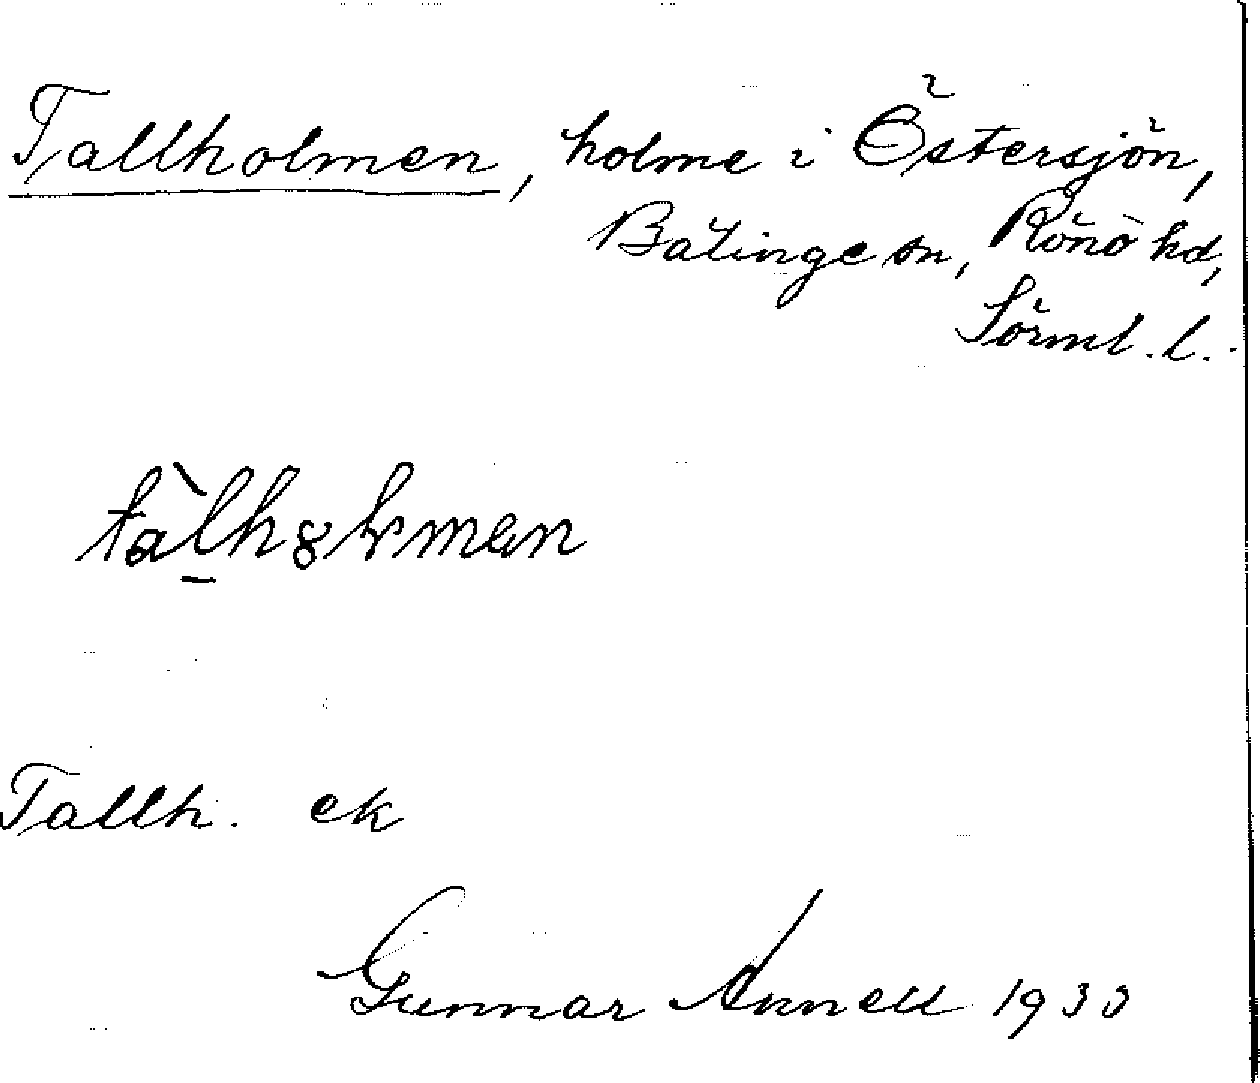 Tallholmen, holme i Östersjön,
Bälinge sn, Rönö hd,
Sörml. l.
Tallh. ek
Gunnar Annell 1933